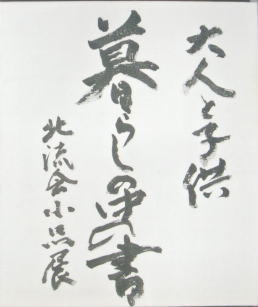 大人と子供
暮らしの中の書
北流会小品展